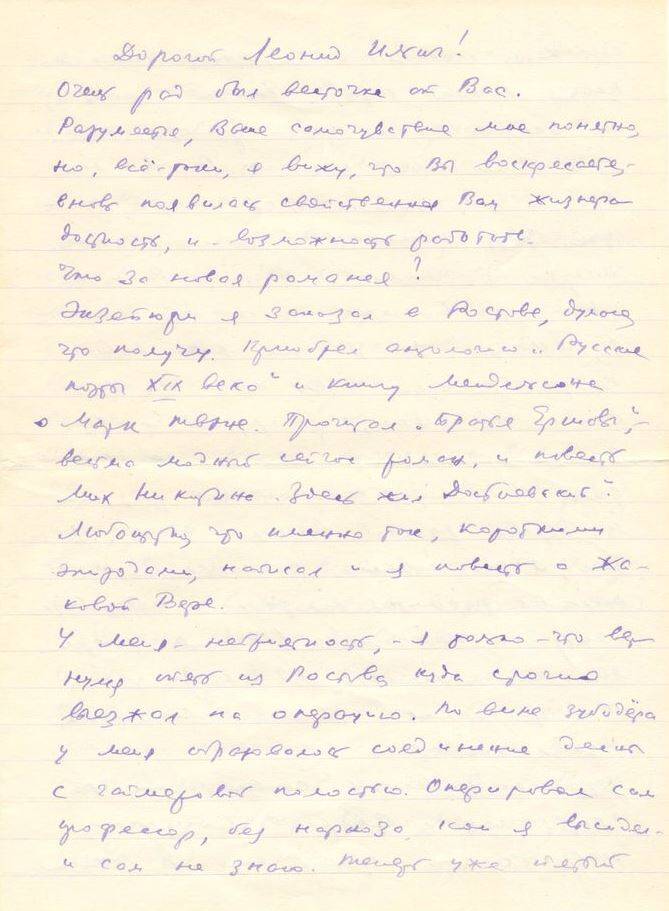 Дорогой Леонид Ильич!
Очень рад был весточке от Вас.
Разумеется, Ваше самочувствие мне понятно,
но, всё-таки, я вижу, что Вы воскресаете,-
вновь появилась свойственная Вам жизнера-
достность, и - возможность работать.
Что за новая романея?
я заказал в Ростове, думаю
что получу. Приобрел антологию "Русские
поэты XIX века" и книгу Мендельсона
о Марк Твене. Прочитал "Братья Ершовы",-
весьма модный сейчас роман, и повесть
Мих Никитина "Здесь жил Достоевский".
Любопытно, что именно так, короткими
эпизодами, написал и я повесть о Жа-
ковой Вере.
У меня - неприятность, - я только-что вер-
нулся опять из Ростова, куда срочно
выезжал на операцию. По вине зубодёра
у меня образовалось соединение десны
с гайморовой полостью. Оперировал сам
профессор, без наркоза, как я высидел -
и сам не знаю. Теперь уже